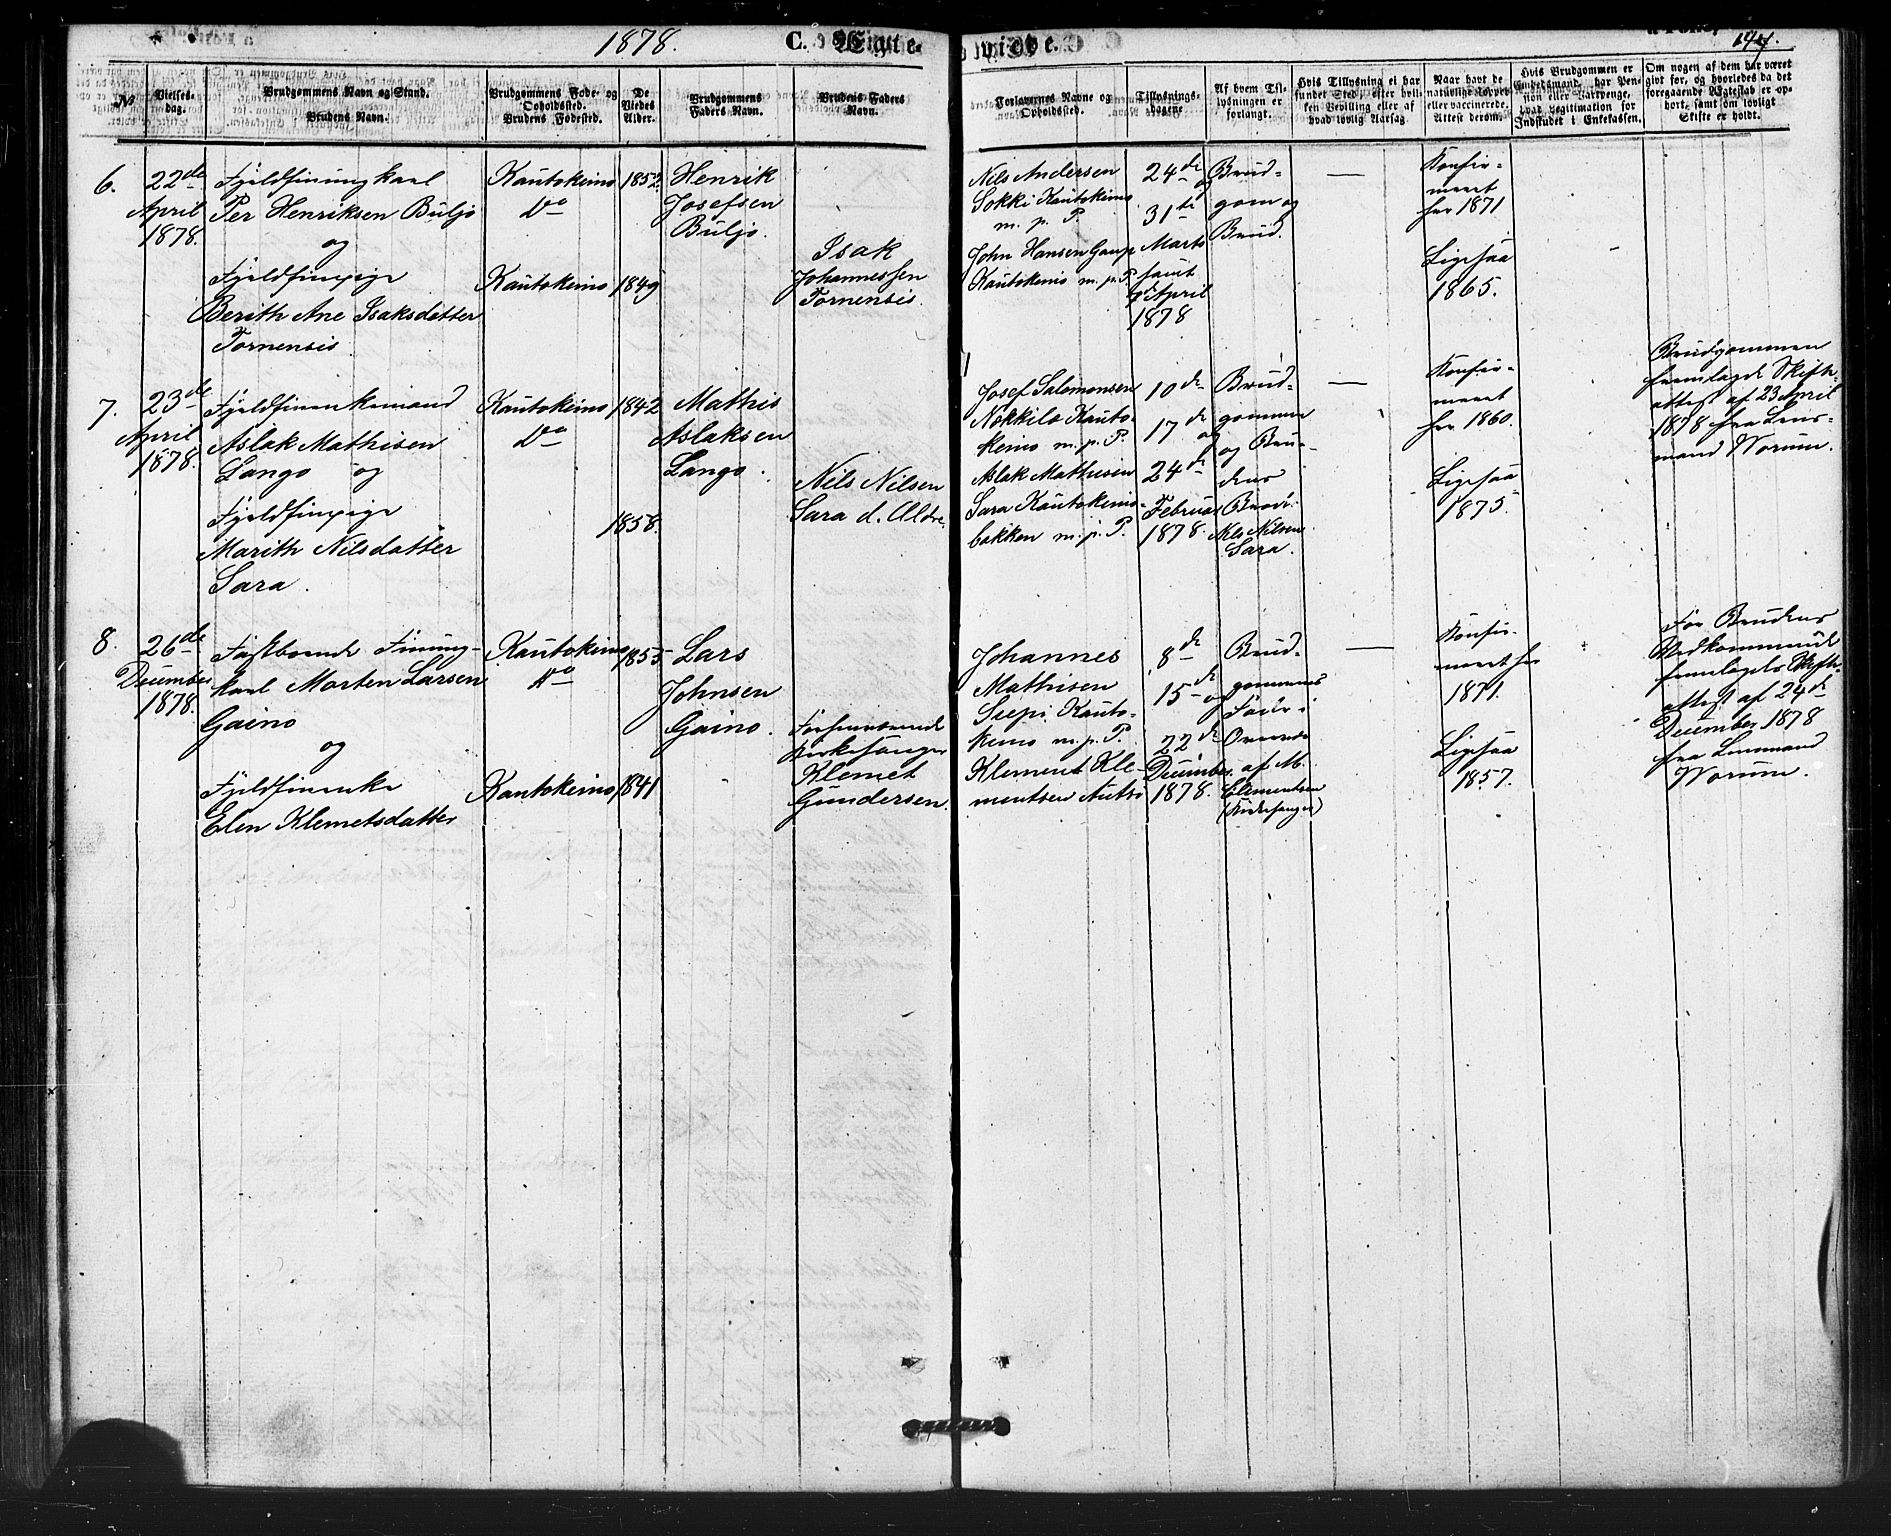 1878. C. Ægte-
viede. 144.
№
Vielses-
dag.
Brudgommens Navn og Stand.
Brudens Navn.
Brudgommens Føde- og
Opholdssted.
Brudens Fødested.
De
Viedes
Alder.
Brudgommens
Faders Navn.
Brudens Faders
Navn.
Forlovernes Navne og
Opholdssted.
Tillysnings-
dagene.
Af hvem Til-
lysningen er
forlangt.
Hvis Tillysning ei har
fundet Sted, efter hvil-
ken Bevilling eller af
hvad lovlig Aarsag.
Naar havt de
naturlige Kopper
eller vaccinerede.
Attest derom.
Hvis Brudgommen er
Embedsmand, har Pen-
sion eller Vartpenge,
hvad Legitimation for
Indskudet i Enkekassen.
Om nogen af dem har været
gift før, og hvorledes da det
foregaaende Ægteskab er op-
hørt, samt om lovligt
Skifte er holdt.
6.
22de
April
1878.
Fjeldfinungkarl
Per Henriksen Buljo
og
Fjeldfinpige
Berith Ane Isaksdatter
Tornensis
Kautokeino
Do
Kautokeino
1852.
1849
Henrik
Josefsen
Buljo.
Isak
Johannessen
Tornensis.
Nils Andersen
Sokki Kautokeino
m. p. P.
John Hansen Gaup
Kautokeino m. p. P.
24de
31te
Marts
samt
7de April
1878
Brud-
gom og
Brud.
—
Konfir-
meret
her 1871
Ligesaa
1865.
7.
23de
April
1878.
Fjeldfinenkemand
Aslak Mathisen
Lango og
Fjeldfinpige
Marith Nilsdatter
Sara.
Kautokeino
Do
1842
1858.
Mathis
Aslaksen
Lango.
Nils Nilsen
Sara d. Aldre.
Josef Salomonsen
Nekkila Kauto-
keino m. p. P.
Aslak Mathisen
Sara Kautokeino-
bakken m. p. P.
10de
17de og
24de
Februar
1878.
Brud-
gommen
og Bru-
dens
Broder
Nils Nilsen
Sara.
—
Konfir-
meret
her 1860.
Ligesaa
1875.
Brudgommen
fremlagde Skifte-
attest af 23 April
1878 fra Lens-
mand Worum.
8.
26de
December
1878.
Fastboende Finung-
karl Morten Larsen
Gaino
og
Fjeldfinenke
Elen Klemetsdatter
Kautokeino
Do
Kautokeino
1855
1841
Lars
Johnsen
Gaino.
Forhenværende
Kirkesanger
Klemet
Gundersen.
Johannes
Mathisen
Siepi Kauto-
keino m. p. P.
Klement Kle-
mentsen Autsi
8de
15de og
22de
December
1878.
Brud-
gommens
Fader i
Overvær
af M.
Clementsen
(Kirkesanger)
—
Konfir-
meret her
1871.
Ligesaa
1857.
For Brudens
Vedkommende
fremlagdes Skifte-
Attest af 24de
December 1878
fra Lensmand
Worum.